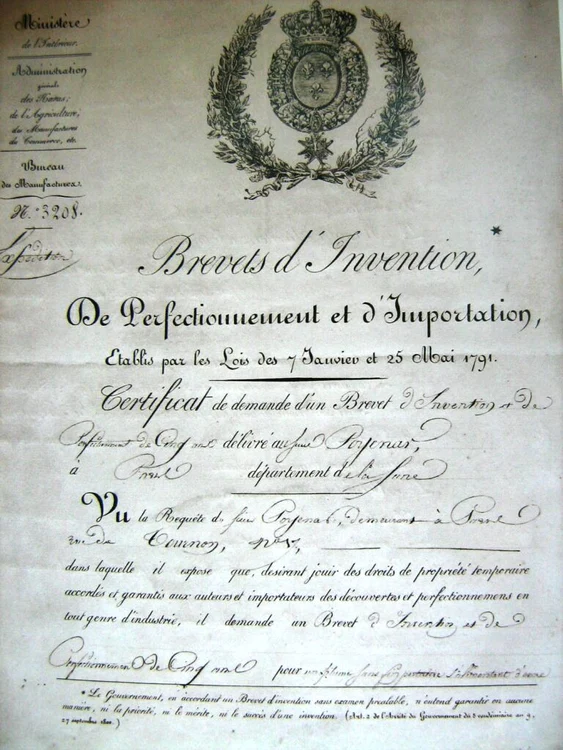 Ministère
de l'Intérieur.
Administration
générale
des Haras,
de l'Agriculture,
des Manufactures
du Commerce, etc.
Bureau
des Manufactures.
N.º 3208.
Expédition
*
Brevets d'Invention,
De Perfectionnement et d'Importation,
Etablis par les Lois des 7 Janvier et 25 Mai 1791.
Certificat de demande d'un Brevet d'Invention et de
Perfectionnement de Cinq ans délivré au sieur
à département de la
Vu la Requête du sieur demeurant à
rue de Tournon,
dans laquelle il expose que, desirant jouir des droits de propriété temporaire
accordés et garantis aux auteurs et importateurs des découvertes et perfectionnemens en
tout genre d'industrie, il demande un Brevet d'Invention et de
Perfectionnement de Cinq ans pour une plume sans fin s'alimentant d'encre
* Le Gouvernement, en accordant un Brevet d'invention sans examen préalable, n'entend garantir en aucune
manière, ni la priorité, ni le mérite, ni le succès d'une invention. (Art. 2 de l'Arrêté du Gouvernement du 5 vendémiaire an 9,
27 septembre 1800.)